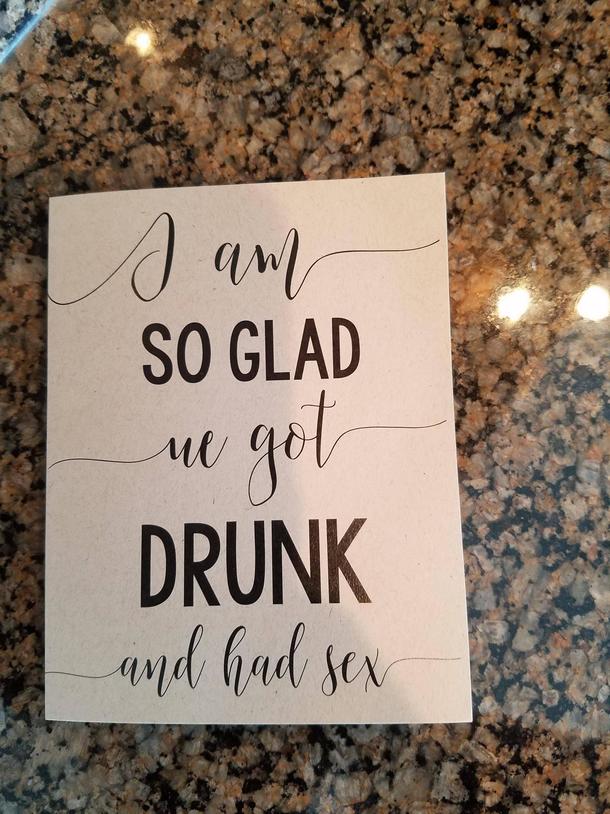 I am
SO GLAD
we got
DRUNK
and had sex